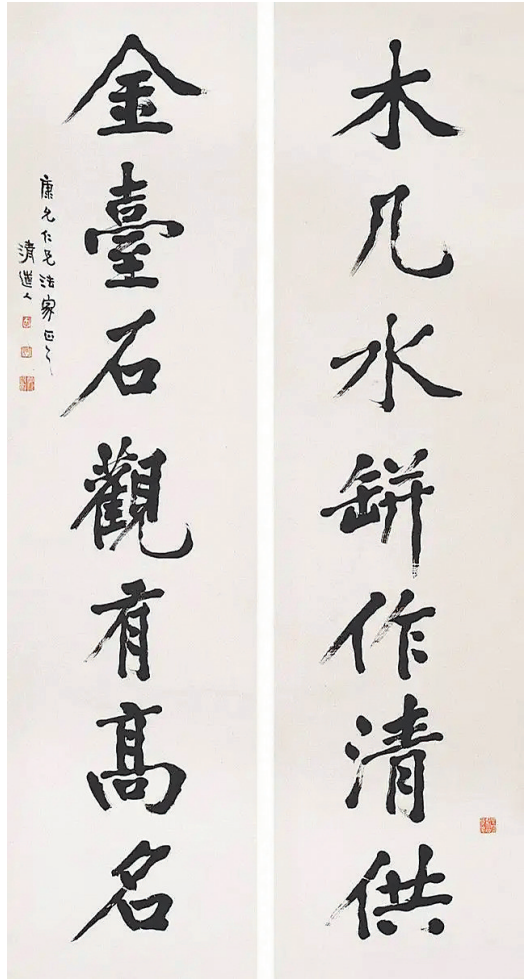 木几水缾作清供
金臺石觀有高名
康允仁兄法家正之
清道人